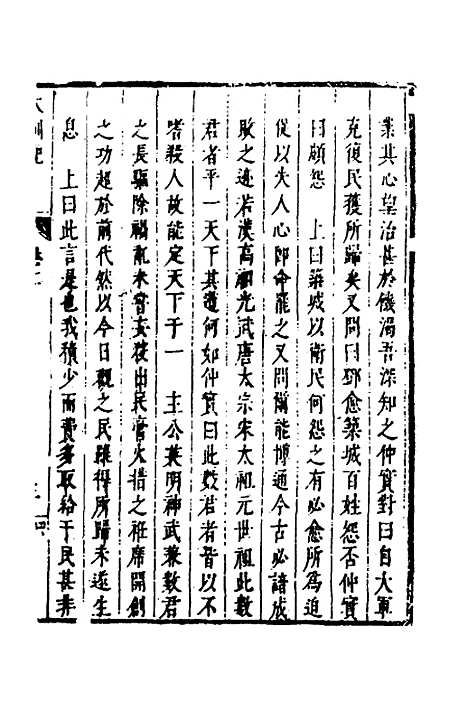 業其心皇治甚於饑渴吾深知之仲實對曰自大軍
克復民獲所歸矣又問曰鄧愈築城百姓怨否仲實
曰頗怨　上曰築城以衛民何怨之有必愈所爲迫
促以失人心即命罷之又問備能博通今古必諳成
敗之迹若漢高祖光武唐太宗宋太祖元世祖此數
君者平一天下其道何如仲實曰此數君者皆以不
嗜殺人故能定天下于一　主公英明神武兼數君
之長驅除禍亂未嘗妄殺出民膏火措之袵席開創
之功超於前代然以今日觀之民雖得所歸未遂生
息　上曰此言是也我積少而費多取給于民甚非
大訓記